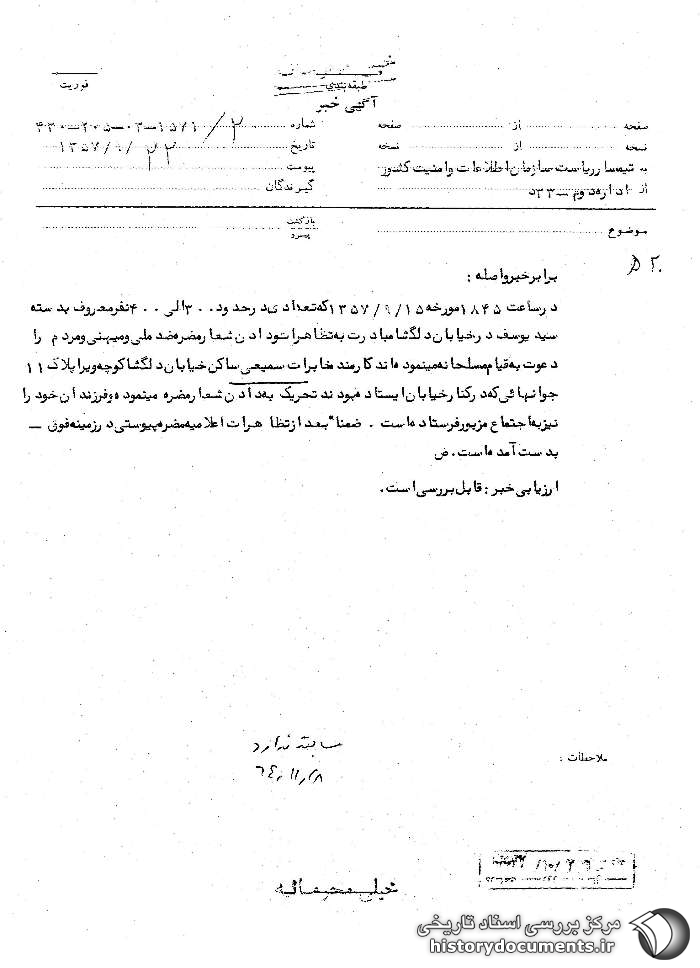 خیلی محرمانه
طبقه بندی
فوریت
آگهی خبر
صفحه از صفحه
شماره ۳/ ۱۵۷۱-۰۳-۲۰۵-۴۳۰
نسخه از نسخه
تاریخ ۱۳۵۷/۹/۲۲
به تیمسار ریاست سازمان اطلاعات و امنیت کشور
پیوست
از اداره دوم - د۳۳
گیرندگان
موضوع
بازگشت
پیرو
۲۰
برابر خبر واصله :
در ساعت ۱۸۴۵ مورخه ۱۳۵۷/۹/۱۵ که تعدادی در حدود ۳۰۰ الی ۴۰۰ نفر معروف به دسته
سید یوسف در خیابان دلگشا مبادرت به تظاهرات و دادن شعار مضره ضد ملی و میهنی و مردم را
دعوت به قیام مسلحانه مینموده اند کارمند مخابرات سمیعی ساکن خیابان دلگشا کوچه ویرا پلاک ۱۱
جوانهائی که در کنار خیابان ایستاده بودند تحریک به دادن شعار مضره مینموده و فرزندان خود را
نیز به اجتماع مزبور فرستاده است . ضمنا" بعد از تظاهرات اعلامیه مضره پیوستی در زمینه فوق -
بدست آمده است. ض
ارزیابی خبر : قابل بررسی است .
ملاحظات :
سابقه ندارد
خیلی محرمانه
مرکز بررسی اسناد تاریخی
historydocuments.ir